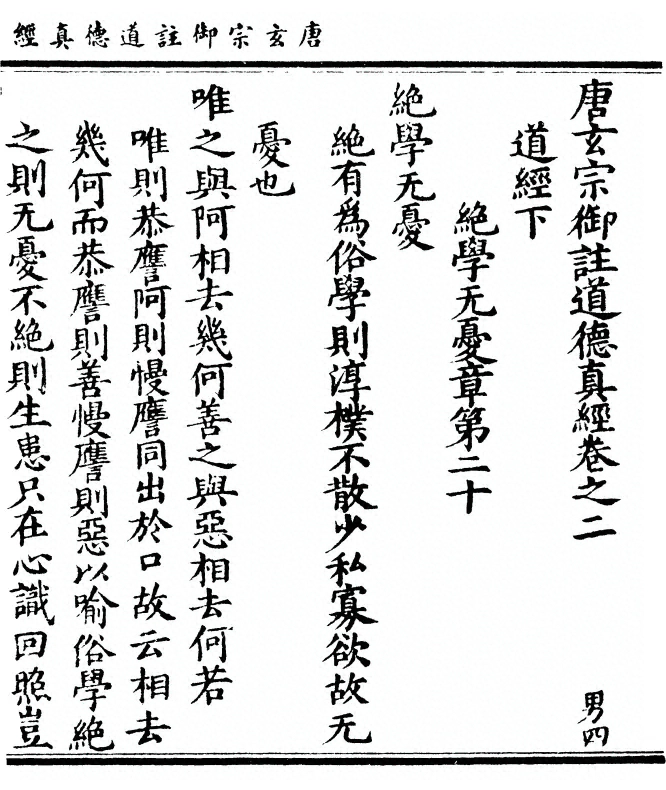 唐玄宗御註道德真經
唐玄宗御註道德真經卷之二
男四
道經下
絕學无憂章第二十
絕學无憂
絕有為俗學則淳樸不散少私寡欲故无
憂也
唯之與阿相去幾何善之與惡相去何若
唯則恭譍阿則慢譍同出於口故云相去
幾何而恭譍則善慢譍則惡以喻俗學絕
之則无憂不絕則生患只在心識回照豈